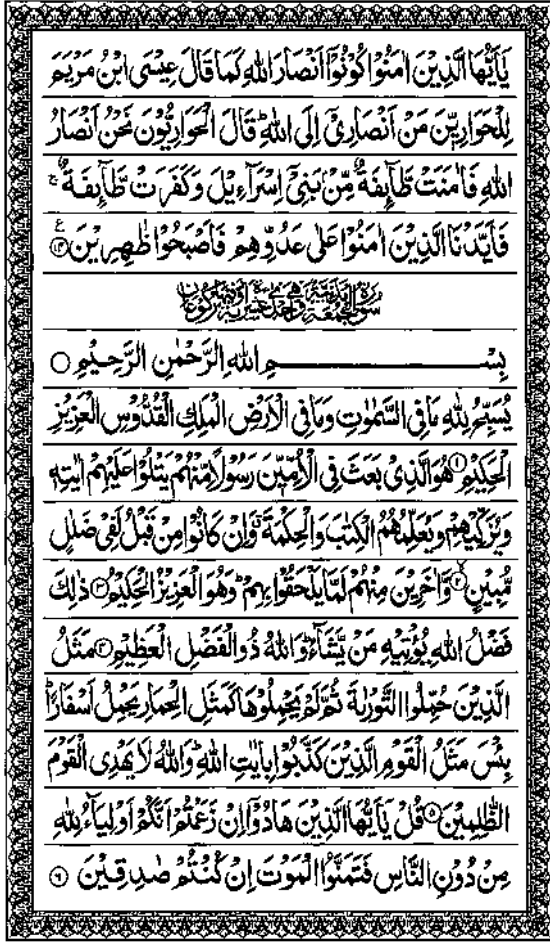 يٰٓاَيُّهَا الَّذِيْنَ اٰمَنُوْا كُوْنُوْٓا اَنْصَارَ اللهِ كَمَا قَالَ عِيْسَى ابْنُ مَرْيَمَ
لِلْحَوَارِيّٖنَ مَنْ اَنْصَارِيْٓ اِلَى اللهِ ؕ قَالَ الْحَوَارِيُّوْنَ نَحْنُ اَنْصَارُ
اللهِ فَاٰمَنَتْ طَّآئِفَةٌ مِّنْۢ بَنِيْٓ اِسْرَآءِيْلَ وَكَفَرَتْ طَّآئِفَةٌ ۚ
فَاَيَّدْنَا الَّذِيْنَ اٰمَنُوْا عَلٰى عَدُوِّهِمْ فَاَصْبَحُوْا ظٰهِرِيْنَ ﴿۱۴﴾ ع
سُوْرَةُ الْجُمُعَةِ
بِسْمِ اللهِ الرَّحْمٰنِ الرَّحِيْمِ ○
يُسَبِّحُ لِلّٰهِ مَا فِي السَّمٰوٰتِ وَمَا فِي الْاَرْضِ الْمَلِكِ الْقُدُّوْسِ الْعَزِيْزِ
الْحَكِيْمِ ﴿۱﴾ هُوَ الَّذِيْ بَعَثَ فِي الْاُمِّيّٖنَ رَسُوْلًا مِّنْهُمْ يَتْلُوْا عَلَيْهِمْ اٰيٰتِهٖ
وَيُزَكِّيْهِمْ وَيُعَلِّمُهُمُ الْكِتٰبَ وَالْحِكْمَةَ ۗ وَاِنْ كَانُوْا مِنْ قَبْلُ لَفِيْ ضَلٰلٍ
مُّبِيْنٍ ﴿۲﴾ وَّاٰخَرِيْنَ مِنْهُمْ لَمَّا يَلْحَقُوْا بِهِمْ ؕ وَهُوَ الْعَزِيْزُ الْحَكِيْمُ ﴿۳﴾ ذٰلِكَ
فَضْلُ اللهِ يُؤْتِيْهِ مَنْ يَّشَآءُ ؕ وَاللهُ ذُو الْفَضْلِ الْعَظِيْمِ ﴿۴﴾ مَثَلُ
الَّذِيْنَ حُمِّلُوا التَّوْرٰىةَ ثُمَّ لَمْ يَحْمِلُوْهَا كَمَثَلِ الْحِمَارِ يَحْمِلُ اَسْفَارًا ؕ
بِئْسَ مَثَلُ الْقَوْمِ الَّذِيْنَ كَذَّبُوْا بِاٰيٰتِ اللهِ ؕ وَاللهُ لَا يَهْدِي الْقَوْمَ
الظّٰلِمِيْنَ ﴿۵﴾ قُلْ يٰٓاَيُّهَا الَّذِيْنَ هَادُوْٓا اِنْ زَعَمْتُمْ اَنَّكُمْ اَوْلِيَآءُ لِلّٰهِ
مِنْ دُوْنِ النَّاسِ فَتَمَنَّوُا الْمَوْتَ اِنْ كُنْتُمْ صٰدِقِيْنَ ﴿۶﴾